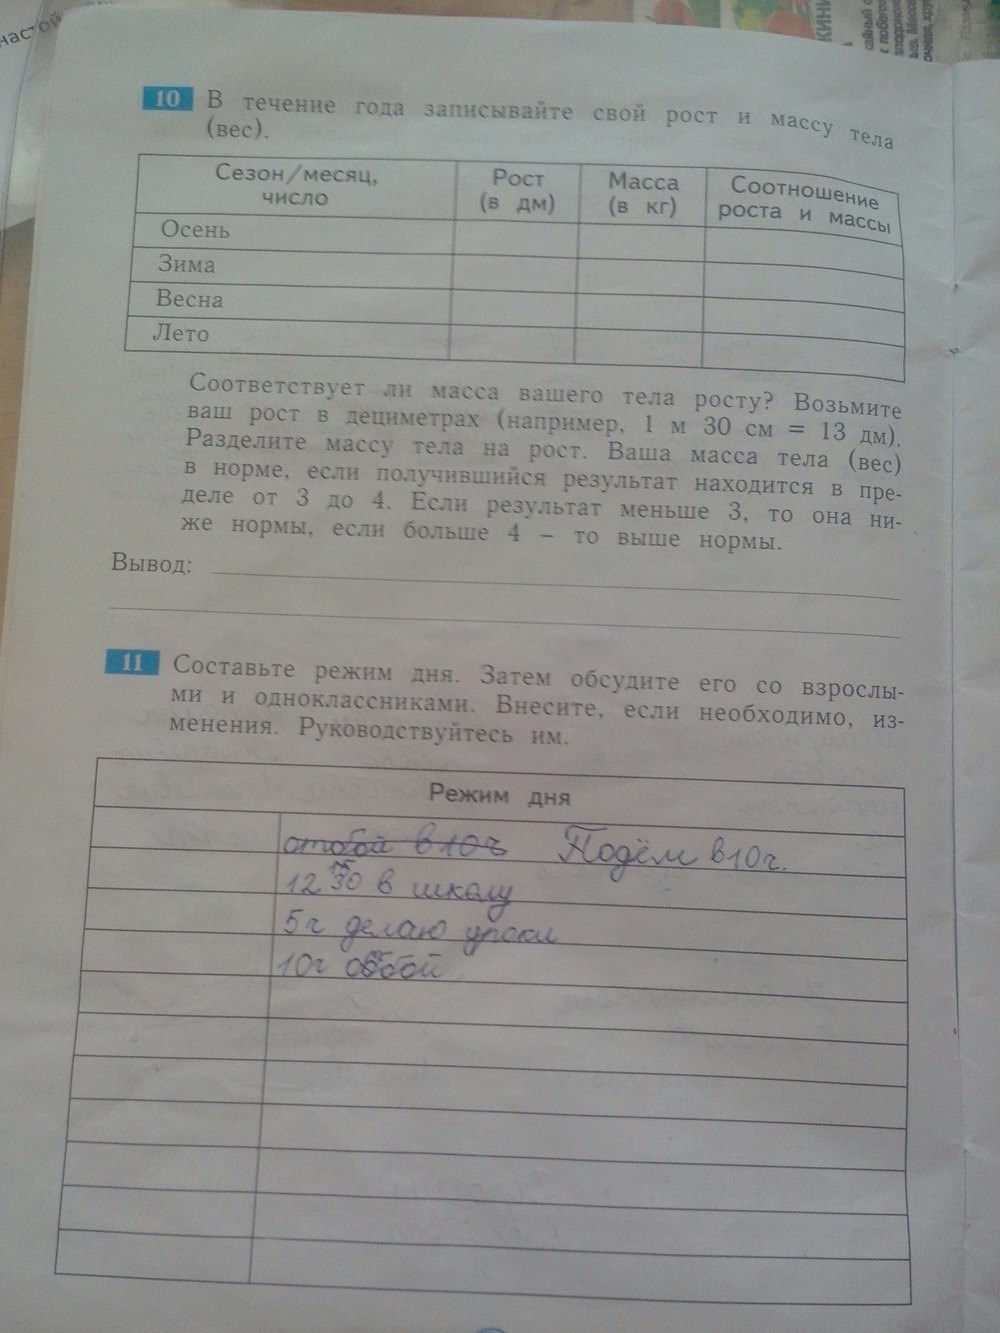 настой
КИНИ
10 В течение года записывайте свой рост и массу тела
(вес).
Сезон/месяц, число Рост (в дм) Масса (в кг) Соотношение роста и массы
Осень
Зима
Весна
Лето
Соответствует ли масса вашего тела росту? Возьмите
ваш рост в дециметрах (например, 1 м 30 см = 13 дм).
Разделите массу тела на рост. Ваша масса тела (вес)
в норме, если получившийся результат находится в пре-
деле от 3 до 4. Если результат меньше 3, то она ни-
же нормы, если больше 4 – то выше нормы.
Вывод:
11 Составьте режим дня. Затем обсудите его со взрослы-
ми и одноклассниками. Внесите, если необходимо, из-
менения. Руководствуйтесь им.
Режим дня
отбой в 10ч Подём в 10 г.
12 30 в школу
5ч делаю уроки
10ч отбой